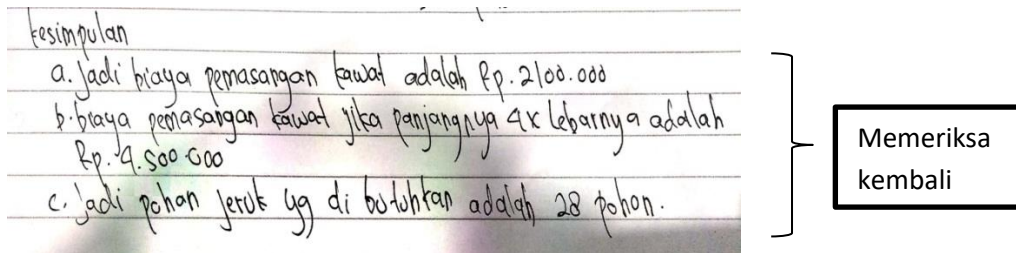 kesimpulan
a. Jadi biaya pemasangan kawat adalah Rp. 2100.000
b. biaya pemasangan kawat jika panjangnya 4x lebarnya adalah
Rp. 4.500.000
c. jadi pohon jeruk yg di butuhkan adalah 28 pohon.
Memeriksa
kembali